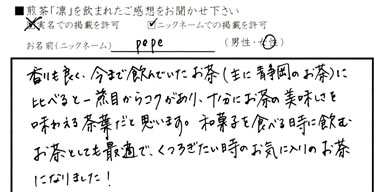 ■煎茶「凛」を飲まれたご感想をお聞かせ下さい
□実名での掲載を許可 ☑ニックネームでの掲載を許可
お名前(ニックネーム) pepe (男性・女性)
香りも良く、今まで飲んでいたお茶(主に静岡のお茶)に
比べると一煎目からコクがあり、十分にお茶の美味しさを
味わえる茶葉だと思います。和菓子を食べる時に飲む
お茶としても最適で、くつろぎたい時のお気に入りのお茶
になりました!